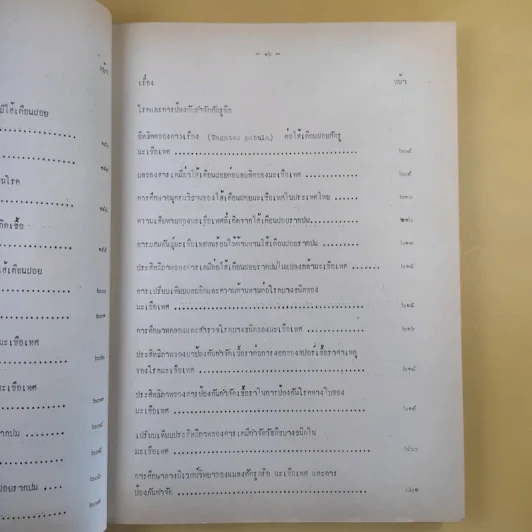 หน้า
มีไส้เดือนฝอย
นโรค
กิดเชื้อ
ไส้เดือนฝอย
๒๐๐
๒๐๑
มะเขือเทศ
๒๐๓
มะเขือเทศ
รากปม
๒๐๕
๒๐๖
ฝอยรากปม
๒๐๗
เรื่อง หน้า
โรคและการป้องกันกำจัดศัตรูพืช
อิทธิพลของดาวเรือง (Tagetes patula) ต่อไส้เดือนฝอยศัตรู
มะเขือเทศ ๒๐๘
ผลของสารเคมีฆ่าไส้เดือนฝอยต่อผลผลิตของมะเขือเทศ ๒๐๙
การศึกษาอนุกรมวิธานของไส้เดือนฝอยมะเขือเทศในประเทศไทย ๒๑๐
ความเสียหายของมะเขือเทศที่เกิดจากไส้เดือนฝอยรากปม ๒๑๒
การผสมพันธุ์มะเขือเทศทนร้อนให้ต้านทานไส้เดือนฝอยรากปม ๒๑๓
ประสิทธิภาพของสารเคมีต่อไส้เดือนฝอยรากปมในแปลงกล้ามะเขือเทศ ๒๑๔
การเปรียบเทียบผลผลิตและความต้านทานต่อโรคบางชนิดของ
มะเขือเทศ ๒๑๕
การศึกษาทดลองและสำรวจโรคบางชนิดของมะเขือเทศ ๒๑๖
ประสิทธิภาพของยาป้องกันกำจัดเชื้อราต่อการงอกของสปอร์เชื้อราสาเหตุ
ของโรคมะเขือเทศ ๒๑๘
ประสิทธิภาพของสารป้องกันกำจัดเชื้อราในการป้องกันโรคทางใบของ
มะเขือเทศ ๒๑๙
เปรียบเทียบประสิทธิภาพของสารเคมีกำจัดวัชพืชบางชนิดใน
มะเขือเทศ ๒๒๐
การศึกษาทางนิเวศน์วิทยาของแมลงศัตรูพริก มะเขือเทศ และการ
ป้องกันกำจัด ๒๒๑